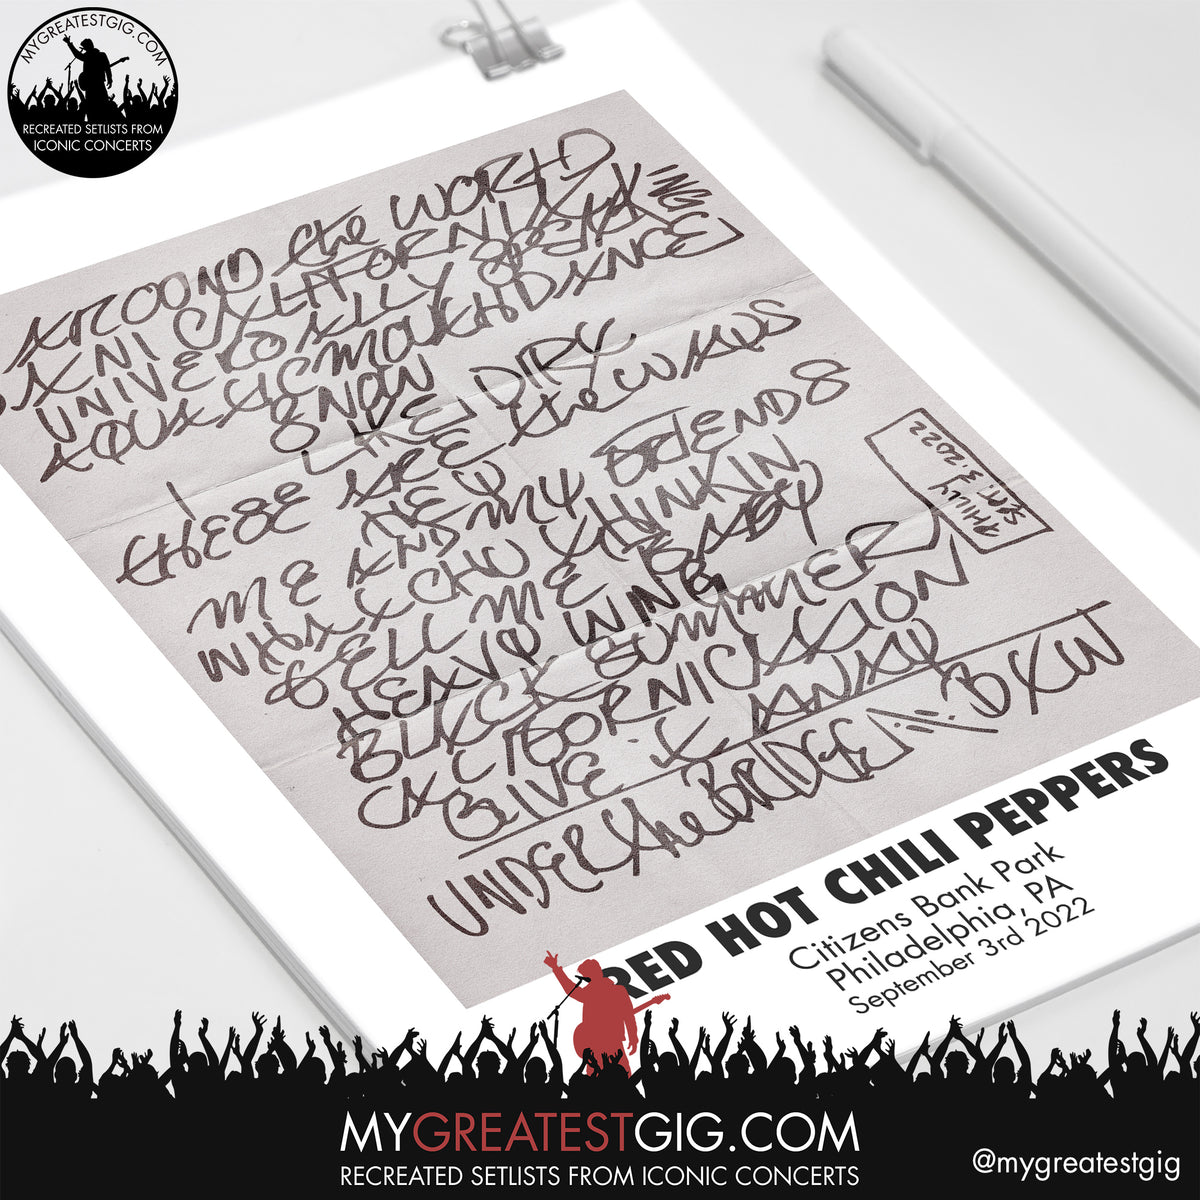 MYGREATESTGIG.COM
RECREATED SETLISTS FROM
ICONIC CONCERTS
AROOND the WORLD
DANI CALIFORNIA
UNIVERSALLY SPEAKING
AQUATIC MOUTH DANCE
SNOW
LIKE DIRY
THESE ARE the WAYS
HEY
ME AND MY FRIENDS
WHATCHU THINKIN
TELL ME BABY
HEAVY WING
BLACK SUMMER
CALIFORNICATION
GIVE IT AWAY
UNDER the BRIDGE
BXW
PHILLY
SEPT. 3. 2022
RED HOT CHILI PEPPERS
Citizens Bank Park
Philadelphia, PA
September 3rd 2022
MYGREATESTGIG.COM
RECREATED SETLISTS FROM ICONIC CONCERTS
@mygreatestgig